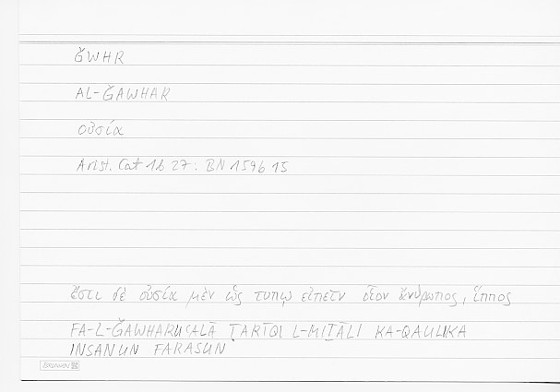 ǦWHR
AL-ǦAWHAR
οὐσία
Arist. Cat 1b 27 : BN 159b 15
ἔστι δὲ οὐσία μὲν ὡς τυπῳ εἰπεῖν οἷον ἄνθρωπος, ἵππος
FA-L-ǦAWHARU ʿALĀ ṬARĪQI L-MIṮĀLI KA-QAULIKA
INSANUN FARASUN